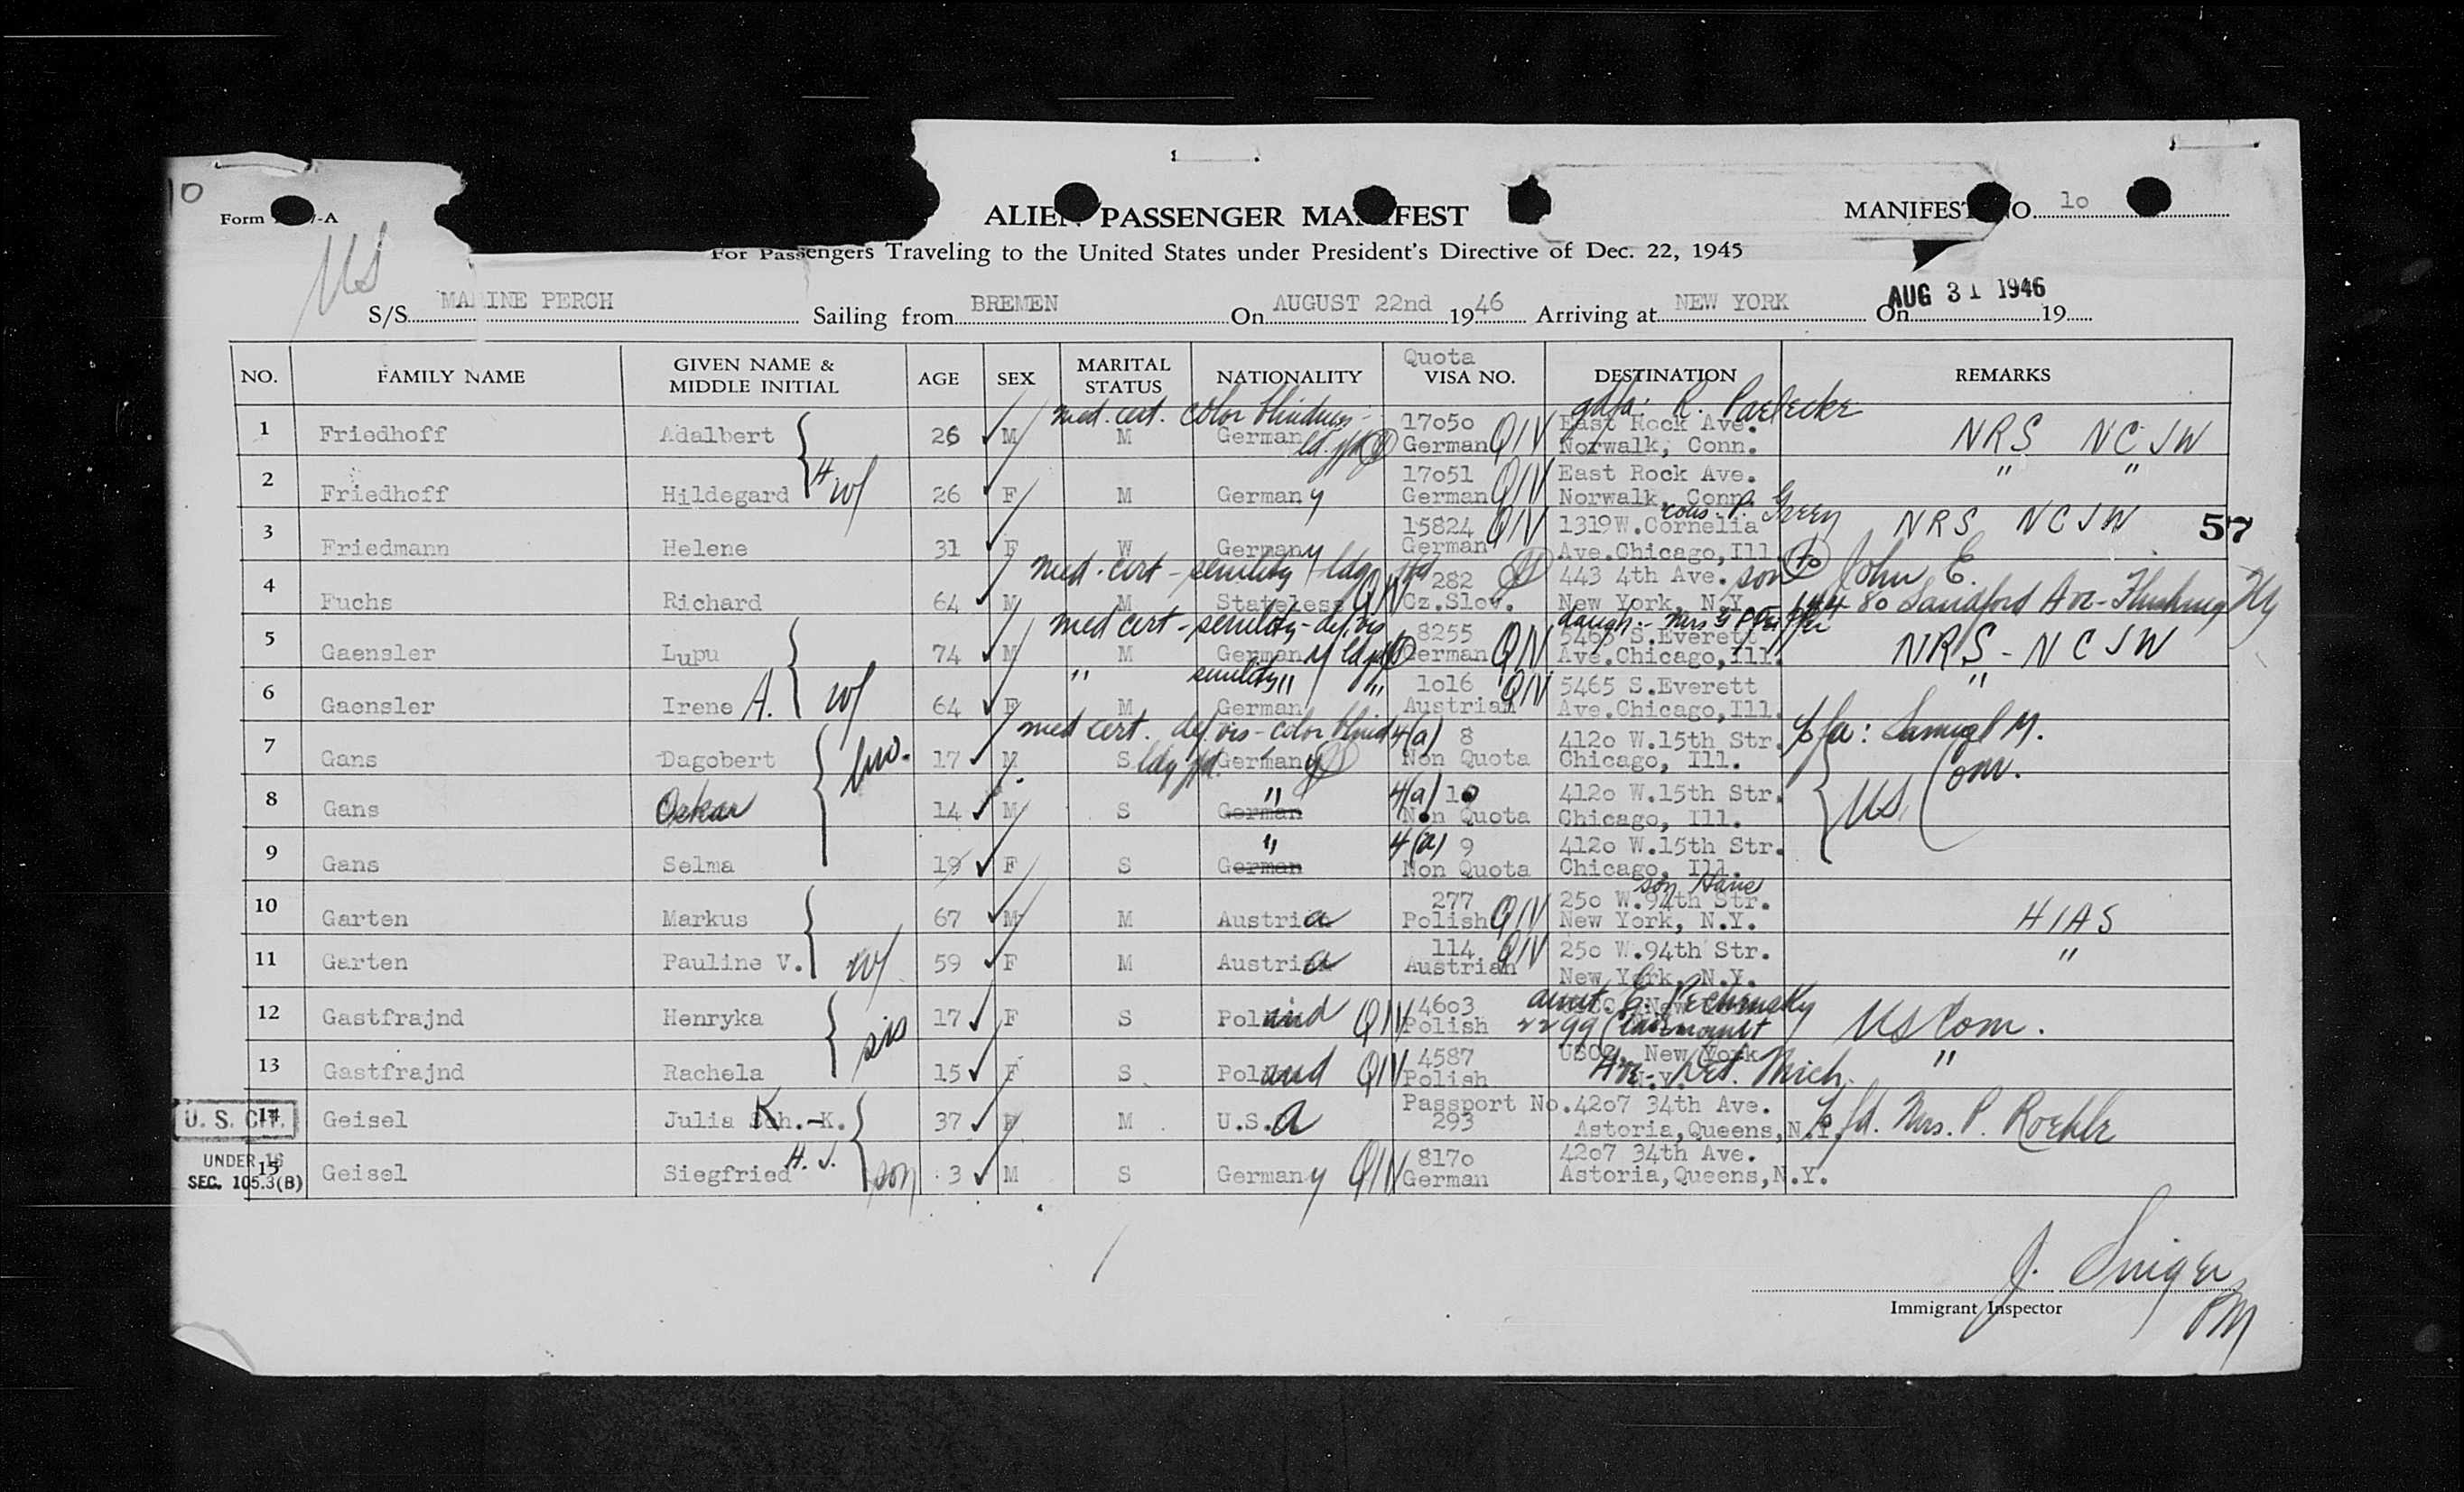 10
Form -A
ALIEN PASSENGER MANIFEST
MANIFEST NO. 10
For Passengers Traveling to the United States under President's Directive of Dec. 22, 1945
US
S/S MARINE PERCH Sailing from BREMEN On AUGUST 22nd 1946 Arriving at NEW YORK On AUG 31 1946 19
NO. FAMILY NAME GIVEN NAME & MIDDLE INITIAL AGE SEX MARITAL STATUS NATIONALITY Quota VISA NO. DESTINATION REMARKS
med. cert. color blindness
1 Friedhoff Adalbert 26 M M German 17050 German QIV East Rock Ave. Norwalk, Conn. NRS NCJW
2 Friedhoff Hildegard H W 26 F M Germany 17051 German QIV East Rock Ave. Norwalk, Conn. " "
cous. P. Green
3 Friedmann Helene 31 F W Germany 15824 German QIV 1319W.Cornelia Ave.Chicago,Ill. NRS NCJW
57
med. cert - senility
4 Fuchs Richard 64 M M Stateless QIV 282 Cz.Slov. 443 4th Ave. New York, N.Y. son to John E. 80 Sandford Ave - Flushing NY
med cert - senility - def. vis daugh:- Mrs
5 Gaensler Lupu 74 M M Germany 8255 German QIV 5465 S.Everett Ave.Chicago,Ill. NRS - NCJW
" senility " "
6 Gaensler Irene A. W 64 F M German 1016 Austrian QIV 5465 S.Everett Ave.Chicago,Ill. "
med cert. def. vis - color blind
7 Gans Dagobert 17 M S Germany 4(a) 8 Non Quota 4120 W.15th Str. Chicago, Ill. Samuel M.
8 Gans Oskar 14 M S German " 4(a) 10 Non Quota 4120 W.15th Str. Chicago, Ill. US Com.
9 Gans Selma 19 F S German " 4(a) 9 Non Quota 4120 W.15th Str. Chicago, Ill.
son Hans
10 Garten Markus 67 M M Austria 277 Polish QIV 250 W.94th Str. New York, N.Y. HIAS
11 Garten Pauline V. W 59 F M Austria 114 Austrian QIV 250 W.94th Str. New York, N.Y. "
12 Gastfrajnd Henryka sis 17 F S Poland QIV 4603 Polish aunt 2299 Clairmount US Com.
13 Gastfrajnd Rachela 15 F S Poland QIV 4587 Polish New York N.Y. Ave - Det. Mich. "
U. S. CIT.
14 Geisel Julia K.-K. 37 F M U.S.A Passport No. 293 4207 34th Ave. Astoria,Queens,N.Y. Mrs. P. Roehle
UNDER 16
SEC. 105.3(B)
15 Geisel Siegfried H. J. son 3 M S Germany QIV 8170 German 4207 34th Ave. Astoria,Queens,N.Y.
J. Singer
Immigrant Inspector
PM